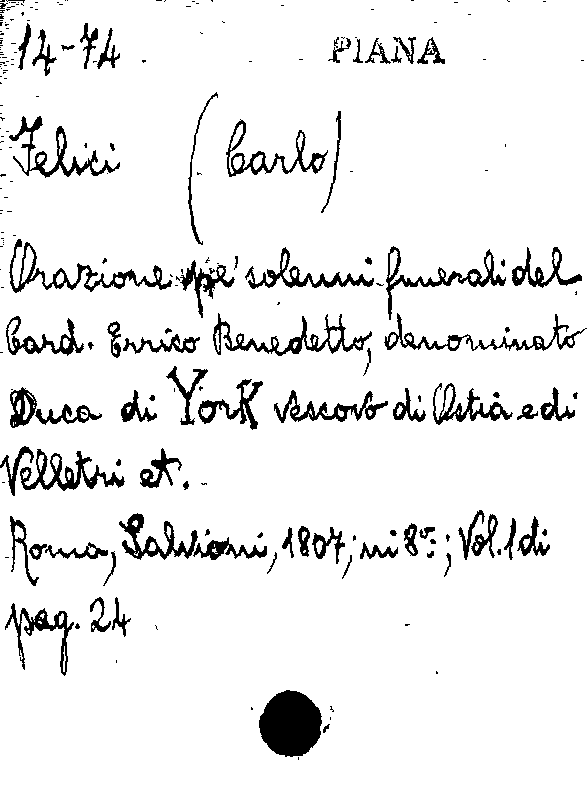 14-74 PIANA
Felici (Carlo)
Orazione pe' solenni funerali del
Card. Errico Benedetto, denominato
Duca di York vescovo di Ostia e di
Velletri et.
Roma, Salvioni, 1807; in 8º: ; Vol. 1 di
pag. 24